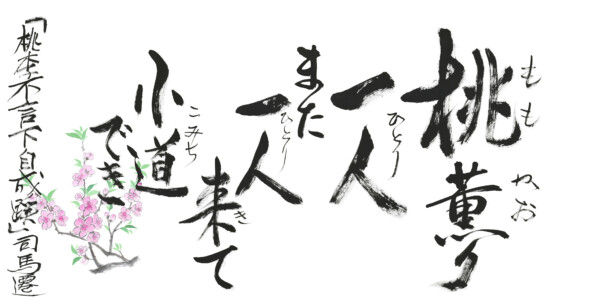 もも かお
桃薫り
ひとり
一人
また一人
ひとり
来て
き
小道
こみち
でき
「桃李不言下自成蹊」司馬遷